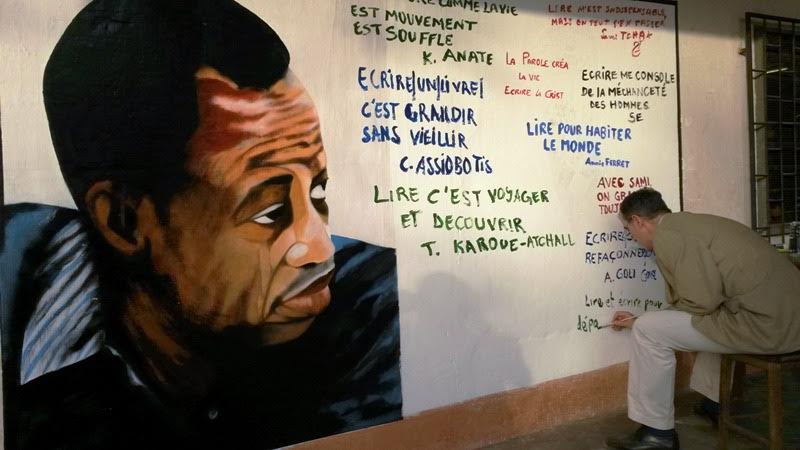 COMME LA VIE
EST MOUVEMENT
EST SOUFFLE
K. ANATE
ECRIRE (UN) (LI)VRE(
C'EST GRANDIR
SANS VIEILLIR
C. ASSIOBOTIS
LIRE C'EST VOYAGER
ET DECOUVRIR
T. KAROUE-ATCHALL
LA PAROLE CRÉA
LA VIE
ECRIRE LA
LIRE N'EST INDISPENSABLE,
MAIS ON PEUT S'EN PASSER
SAMI TCHAK
ECRIRE ME CONSOLE
De la MÉCHANCETÉ
DES HOMMES
SE
LIRE POUR HABITER
LE MONDE
Annie FERRET
AVEC SAMI,
ON
ECRIRE
REFAÇONNER
A. GOLI
Lire et ecrire pour
dépa